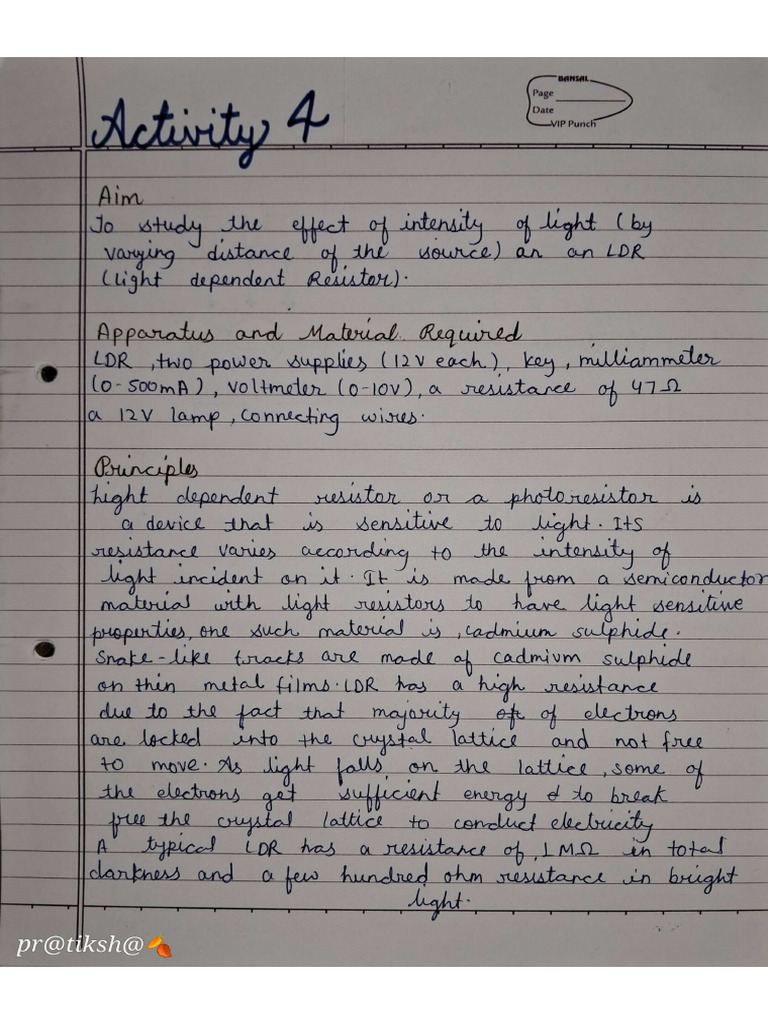 BANSAL
Page
Date
VIP Punch
Activity 4
Aim
To study the effect of intensity of light (by
varying distance of the source) an an LDR
(Light dependent Resistor).
Apparatus and Material Required
LDR, two power supplies (12V each), key, milliammeter
(0-500mA), voltmeter (0-10V), a resistance of 47Ω
a 12V lamp, connecting wires.
Principles
Light dependent resistor or a photoresistor is
a device that is sensitive to light. Its
resistance varies according to the intensity of
light incident on it. It is made from a semiconductor
material with light resistors to have light sensitive
properties, one such material is, cadmium sulphide.
Snake-like tracks are made of cadmium sulphide
on thin metal films. LDR has a high resistance
due to the fact that majority of of electrons
are locked into the crystal lattice and not free
to move. As light falls on the lattice, some of
the electrons get sufficient energy to break
free the crystal lattice to conduct electricity
A typical LDR has a resistance of 1MΩ in total
darkness and a few hundred ohm resistance in bright
light.
pr@tiksh@